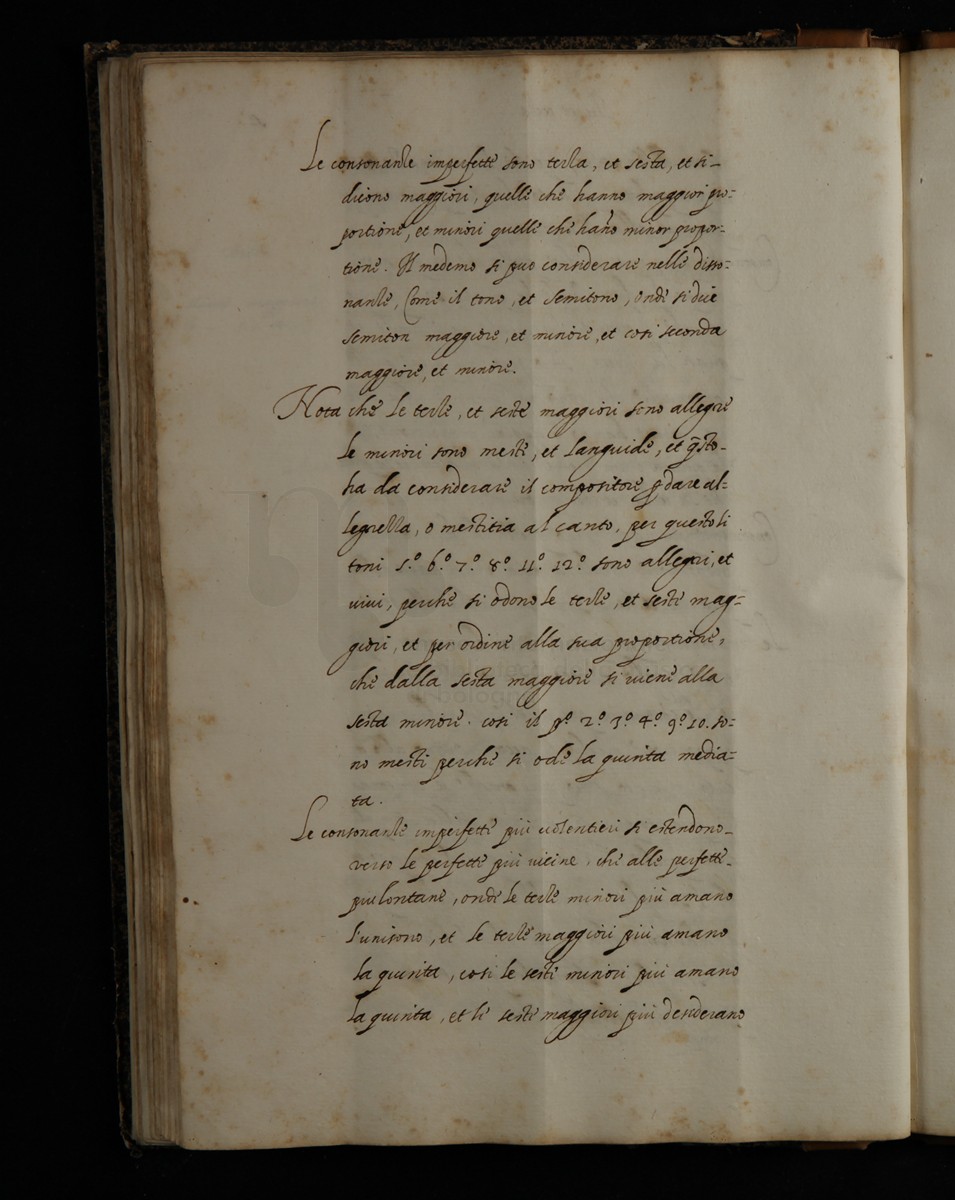 Le consonanze imperfette sono terza, et sesta, et si-
dicono maggiori, quelle che hanno maggior pro=
portione, et minori quelle che hanno minor propor-
tione. Il medemo si puo considerare nelle disso=
nanze, Come il tono, et semitono, onde si dice
semiton maggiore, et minore, et cosi seconda
maggiore, et minore.
Nota che le terze, et seste maggiori sono allegre
le minori sono meste, et languide, et q̃sto-
ha da considerare il compositore p dare al=
legrezza, o mestitia al canto, per questo li
toni 5.º 6.º 7.º 8.º 11.º 12.º sono allegri, et
vivi, perche si odono le terze, et seste mag=
giori, et per ordine alla sua proportione,
che dalla sesta maggiore si viene alla
sesta minore. cosi il pº. 2.º 3.º 4.º 9.º 10. so=
no mesti perche si ode la quinta media=
ta.
Le consonanze imperfette più volentieri si estendono-
verso le perfette più vicine, che alle perfette-
piu lontane, onde le terze minori più amano
l'unisono, et le terze maggiori più amano
la quinta, cosi le seste minori più amano
la quinta, et le seste maggiori più desiderano